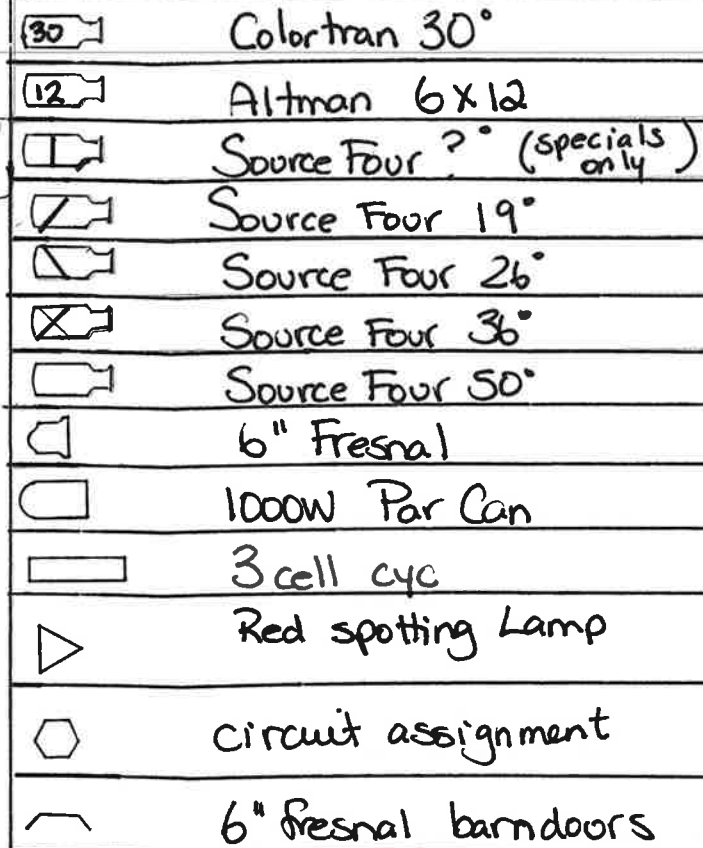 30 Colortran 30°
12 Altman 6x12
Source Four ?° (specials only)
Source Four 19°
Source Four 26°
Source Four 36°
Source Four 50°
6" Fresnal
1000W Par Can
3 cell cyc
Red spotting Lamp
circuit assignment
6" fresnal barndoors